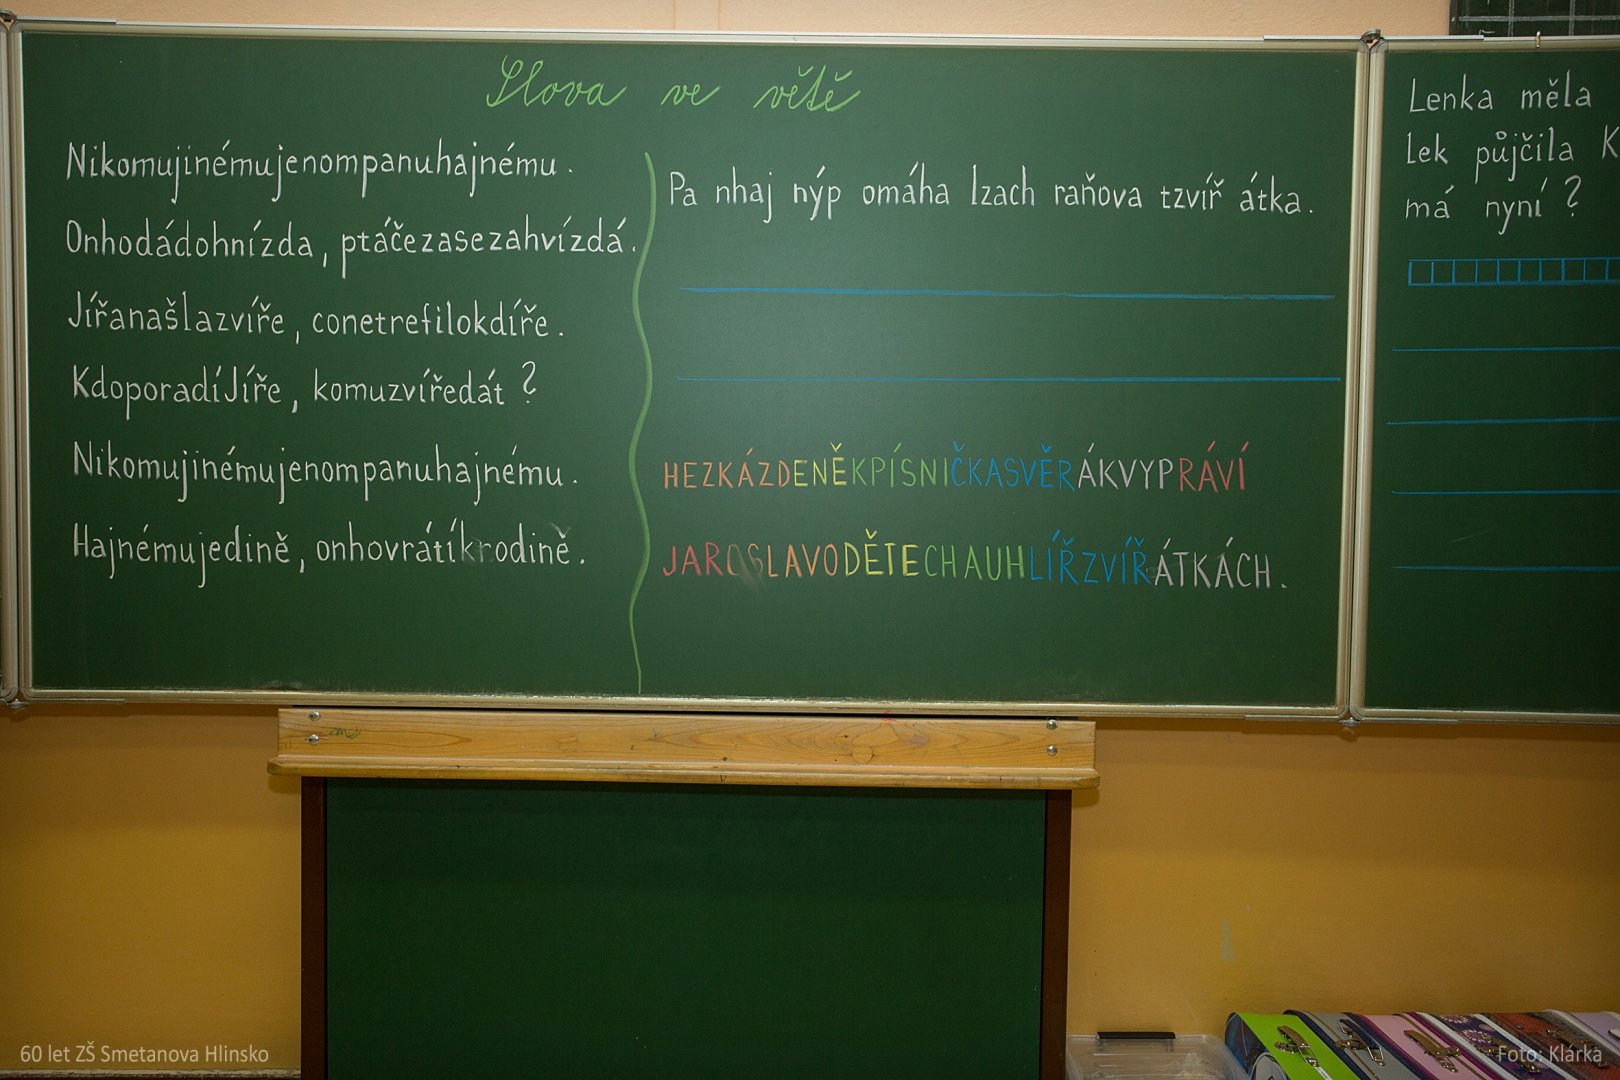 Slova ve větě
Nikomujinémujenompanuhajnému.
Onhodádohnízda, ptáčezasezahvízdá.
Jířanašlazvíře, conetrefilokdíře.
KdoporadíJíře, komuzvíředát?
Nikomujinémujenompanuhajnému.
Hajnémujedině, onhovrátíkrodině.
Pa nhaj nýp omáha lzach raňova tzvíř átka.
HEZKÁZDENĚKPÍSNIČKASVĚRÁKVYPRÁVÍ
JAROSLAVODĚTECHAUHLÍŘZVÍŘÁTKÁCH.
Lenka měla
lek půjčila K
má nyní?
60 let ZŠ Smetanova Hlinsko
Foto: Klárka